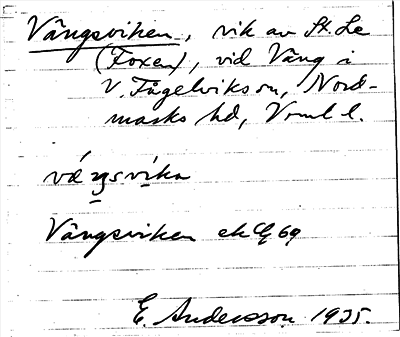 Vångsviken, vik av St. Le
(Foxen), vid Vång i
V. Fågelviks sn, Nord-
marks hd, Vrml l.
Vångsviken ek
E. Andersson 1935.